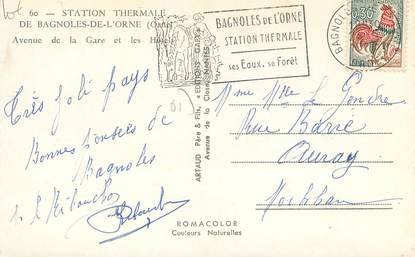 60 - STATION THERMALE
DE BAGNOLES-DE-L'ORNE (Orne)
Avenue de la Gare et les Hôtels
BAGNOLES DE L'ORNE
STATION THERMALE
ses Eaux, sa Forêt
BAGNOLES
0,30
61
Très joli pays
Bonnes pensées de
Bagnoles
ARTAUD Père & Fils, "EDITIONS GABY"
Avenue de la Close, NANTES
Mme Le Gendre
Rue Barré
Auray
Morbihan
ROMACOLOR
Couleurs Naturelles